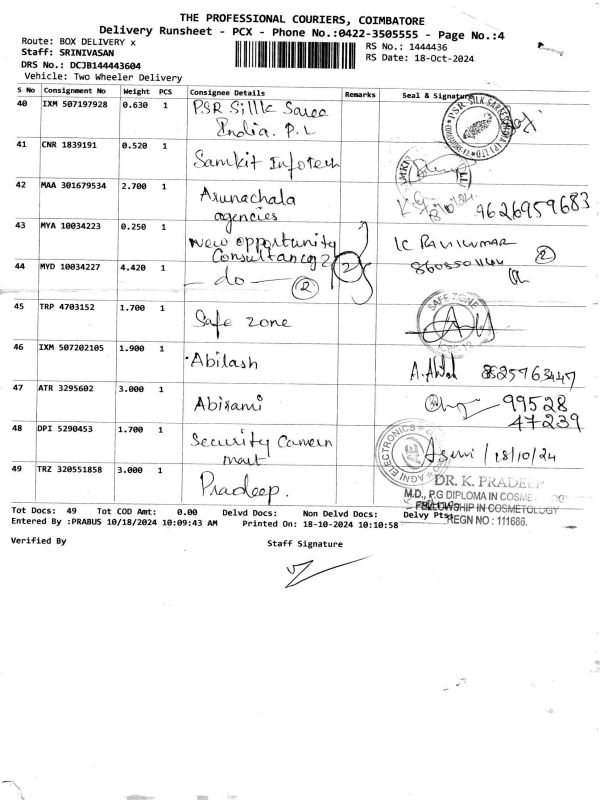 THE PROFESSIONAL COURIERS, COIMBATORE
Delivery Runsheet - PCX - Phone No.:0422-3505555 - Page No.:4
Route: BOX DELIVERY x RS No.: 1444436
Staff: SRINIVASAN RS Date: 18-Oct-2024
DRS No.: DCJB144443604
Vehicle: Two Wheeler Delivery
S No Consignment No Weight PCS Consignee Details Remarks Seal & Signature
40 IXM 507197928 0.630 1 PSR Silllk Saree
India. P. L
41 CNR 1839191 0.520 1 Samkit Infotech
42 MAA 301679534 2.700 1 Arunachala
agencies 9626959683
43 MYA 10034223 0.250 1 New opportunity
Consultancy 2 2 K RAVIKUMAR 2
44 MYD 10034227 4.420 1 - do - 2
45 TRP 4703152 1.700 1 Safe zone SAFE ZONE
46 IXM 507202105 1.900 1 Abilash
47 ATR 3295602 3.000 1 Abirami 99528
47239
48 DPI 5290453 1.700 1 Security Camera
mart Agni / 18/10/24
49 TRZ 320551858 3.000 1 Pradeep.
AGNI ELECTRONICS
DR. K. PRADEEP
M.D., P.G DIPLOMA IN
FELLOWSHIP IN COSMETOLOGY
REGN NO : 111686.
Tot Docs: 49 Tot COD Amt: 0.00 Delvd Docs: Non Delvd Docs: Delvy Pts:
Entered By :PRABUS 10/18/2024 10:09:43 AM Printed On: 18-10-2024 10:10:58
Verified By Staff Signature